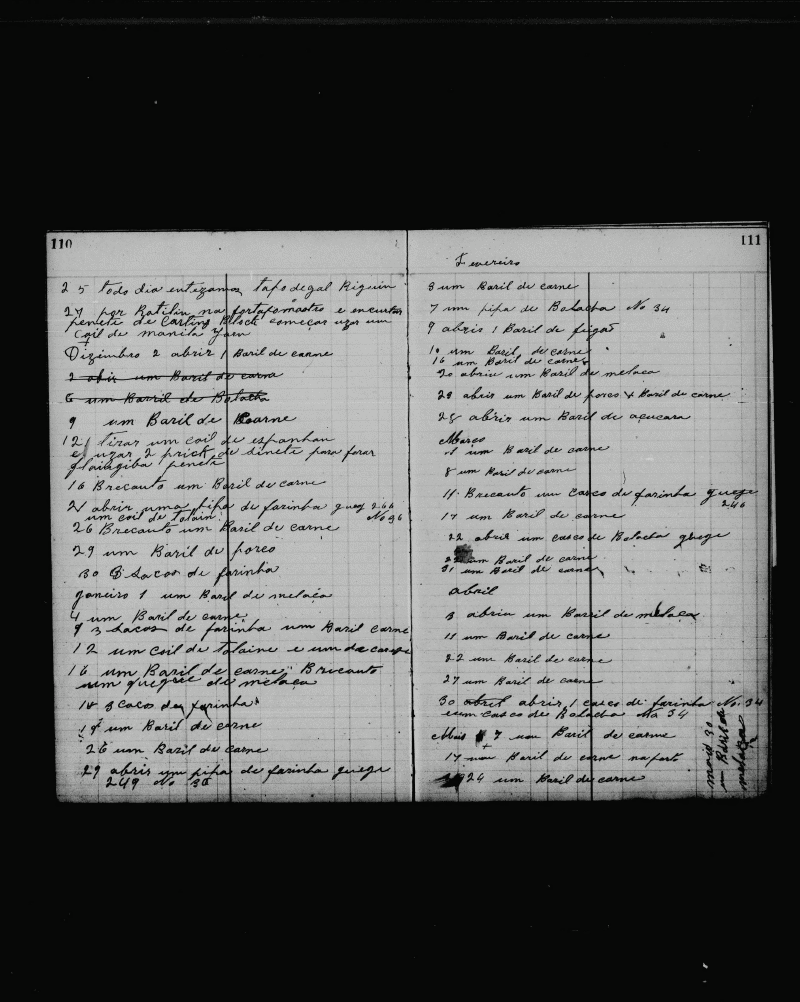 110
25 todo dia entezamos tapo degal Riguin
27 por Ratilin na fortapomastro e encurtar
peneté de Carting Block começar uzar um
Coil de manila Yarn
Dizimbro 2 abrir 1 Baril de carne
2 abir um Baril de carna
6 um Barril de Bolacha
9 um Baril de Carne
12 tirar um coil de espanhan
e uzar 2 prick de sinete para forar
flaingiba peneté
16 Brecauto um Baril de carne
21 abrir uma pipa de farinha guege 266
um coil de tolain No 96
26 Brecauto um Baril de carne
29 um Baril de porco
30 3 sacos de farinha
Janeiro 1 um Baril de melaça
4 um Baril de carne
9 3 sacos de farinha um Baril carne
12 um coil de tolaine e um de
16 um Baril de carne Brecauto
um guegue de melaça
18 3 cacos de farinha
19 um Baril de carne
26 um Baril de carne
29 abrir um pipa de farinha guege
249 No 36
111
Fevereiro
3 um Baril de carne
7 um pipa de Bolacha No 34
9 abris 1 Baril de feigão
10 um Baril de carne
16 um Baril de carne
20 abriu um Baril de melaca
23 abrir um Baril de porco + Baril de carne
28 abrir um Baril de açucara
Março
1 um Baril de carne
8 um Baril de carne
11 Brecauto um casco de farinha guege
246
17 um Baril de carne
22 abrir um casco de Bolacha guege
22 um Baril de carne
31 um Baril de carne
abril
3 abriu um Barril de melaça
11 um Baril de carne
22 um Baril de carne
27 um Baril de carne
30 abril abrir 1 casco de farinha No. 34
e um casco de Bolacha No 34
Maio 7 um Baril de carne
17 um Baril de carne na porto
24 um Baril de carne
maio 30
um Baril de
melaça